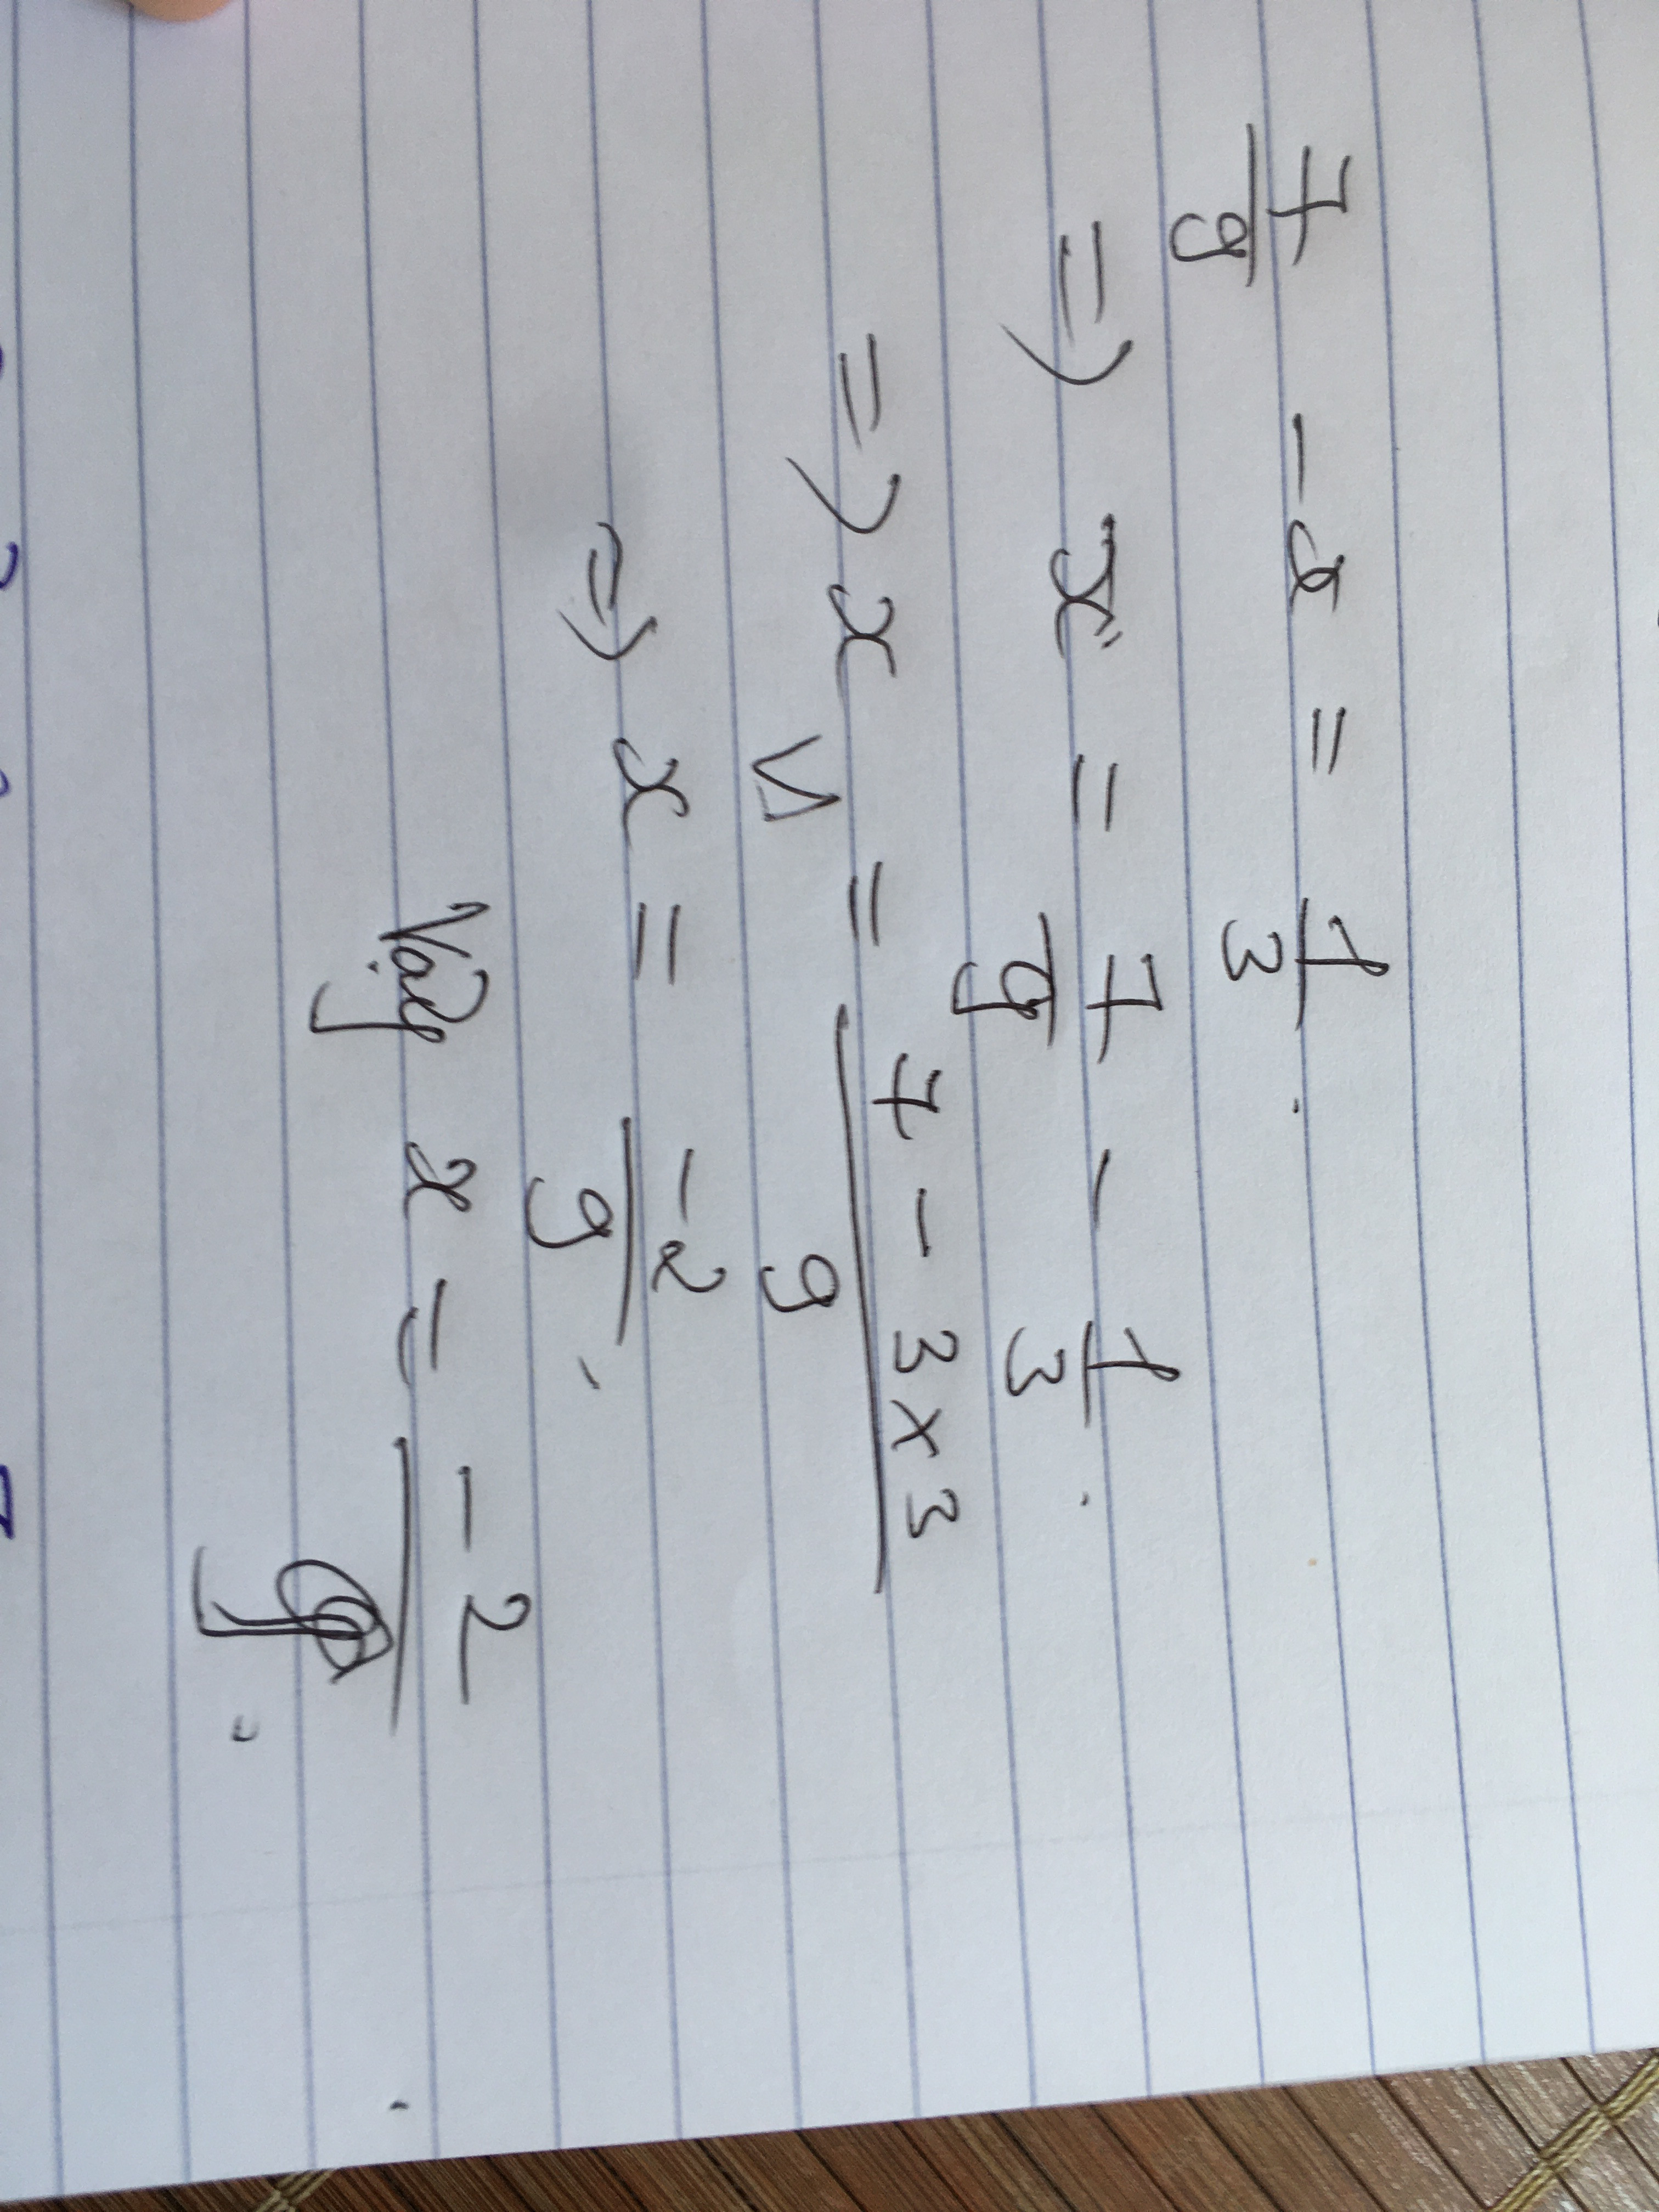 7/9 - x = 1/3.
=> x = 7/9 - 1/3.
=> x = (7 - 3 x 3)/9
=> x = -2/9.
Vậy x = -2/9.